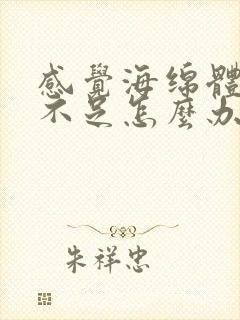 感覺海绵體
不足怎麼办
朱祥忠